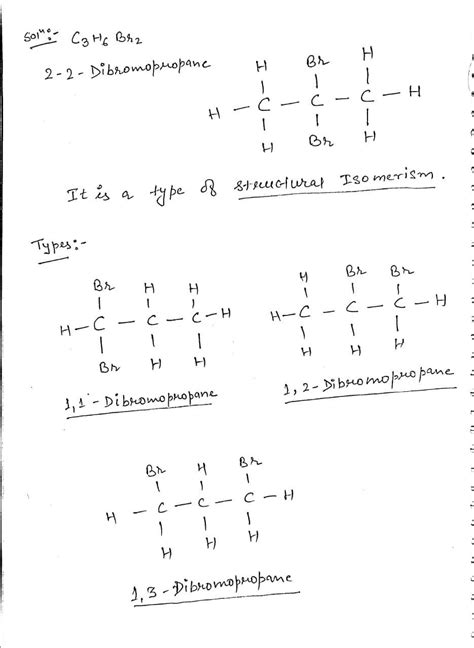 Solne:- C3H6Br2
2-2-Dibromopropane
H Br H
| | |
H - C - C - C - H
| | |
H Br H
It is a type of structural Isomerism.
Types:-
Br H H
| | |
H - C - C - C - H
| | |
Br H H
1,1'-Dibromopropane
H Br Br
| | |
H - C - C - C - H
| | |
H H H
1,2-Dibromopropane
Br H Br
| | |
H - C - C - C - H
| | |
H H H
1,3-Dibromopropane